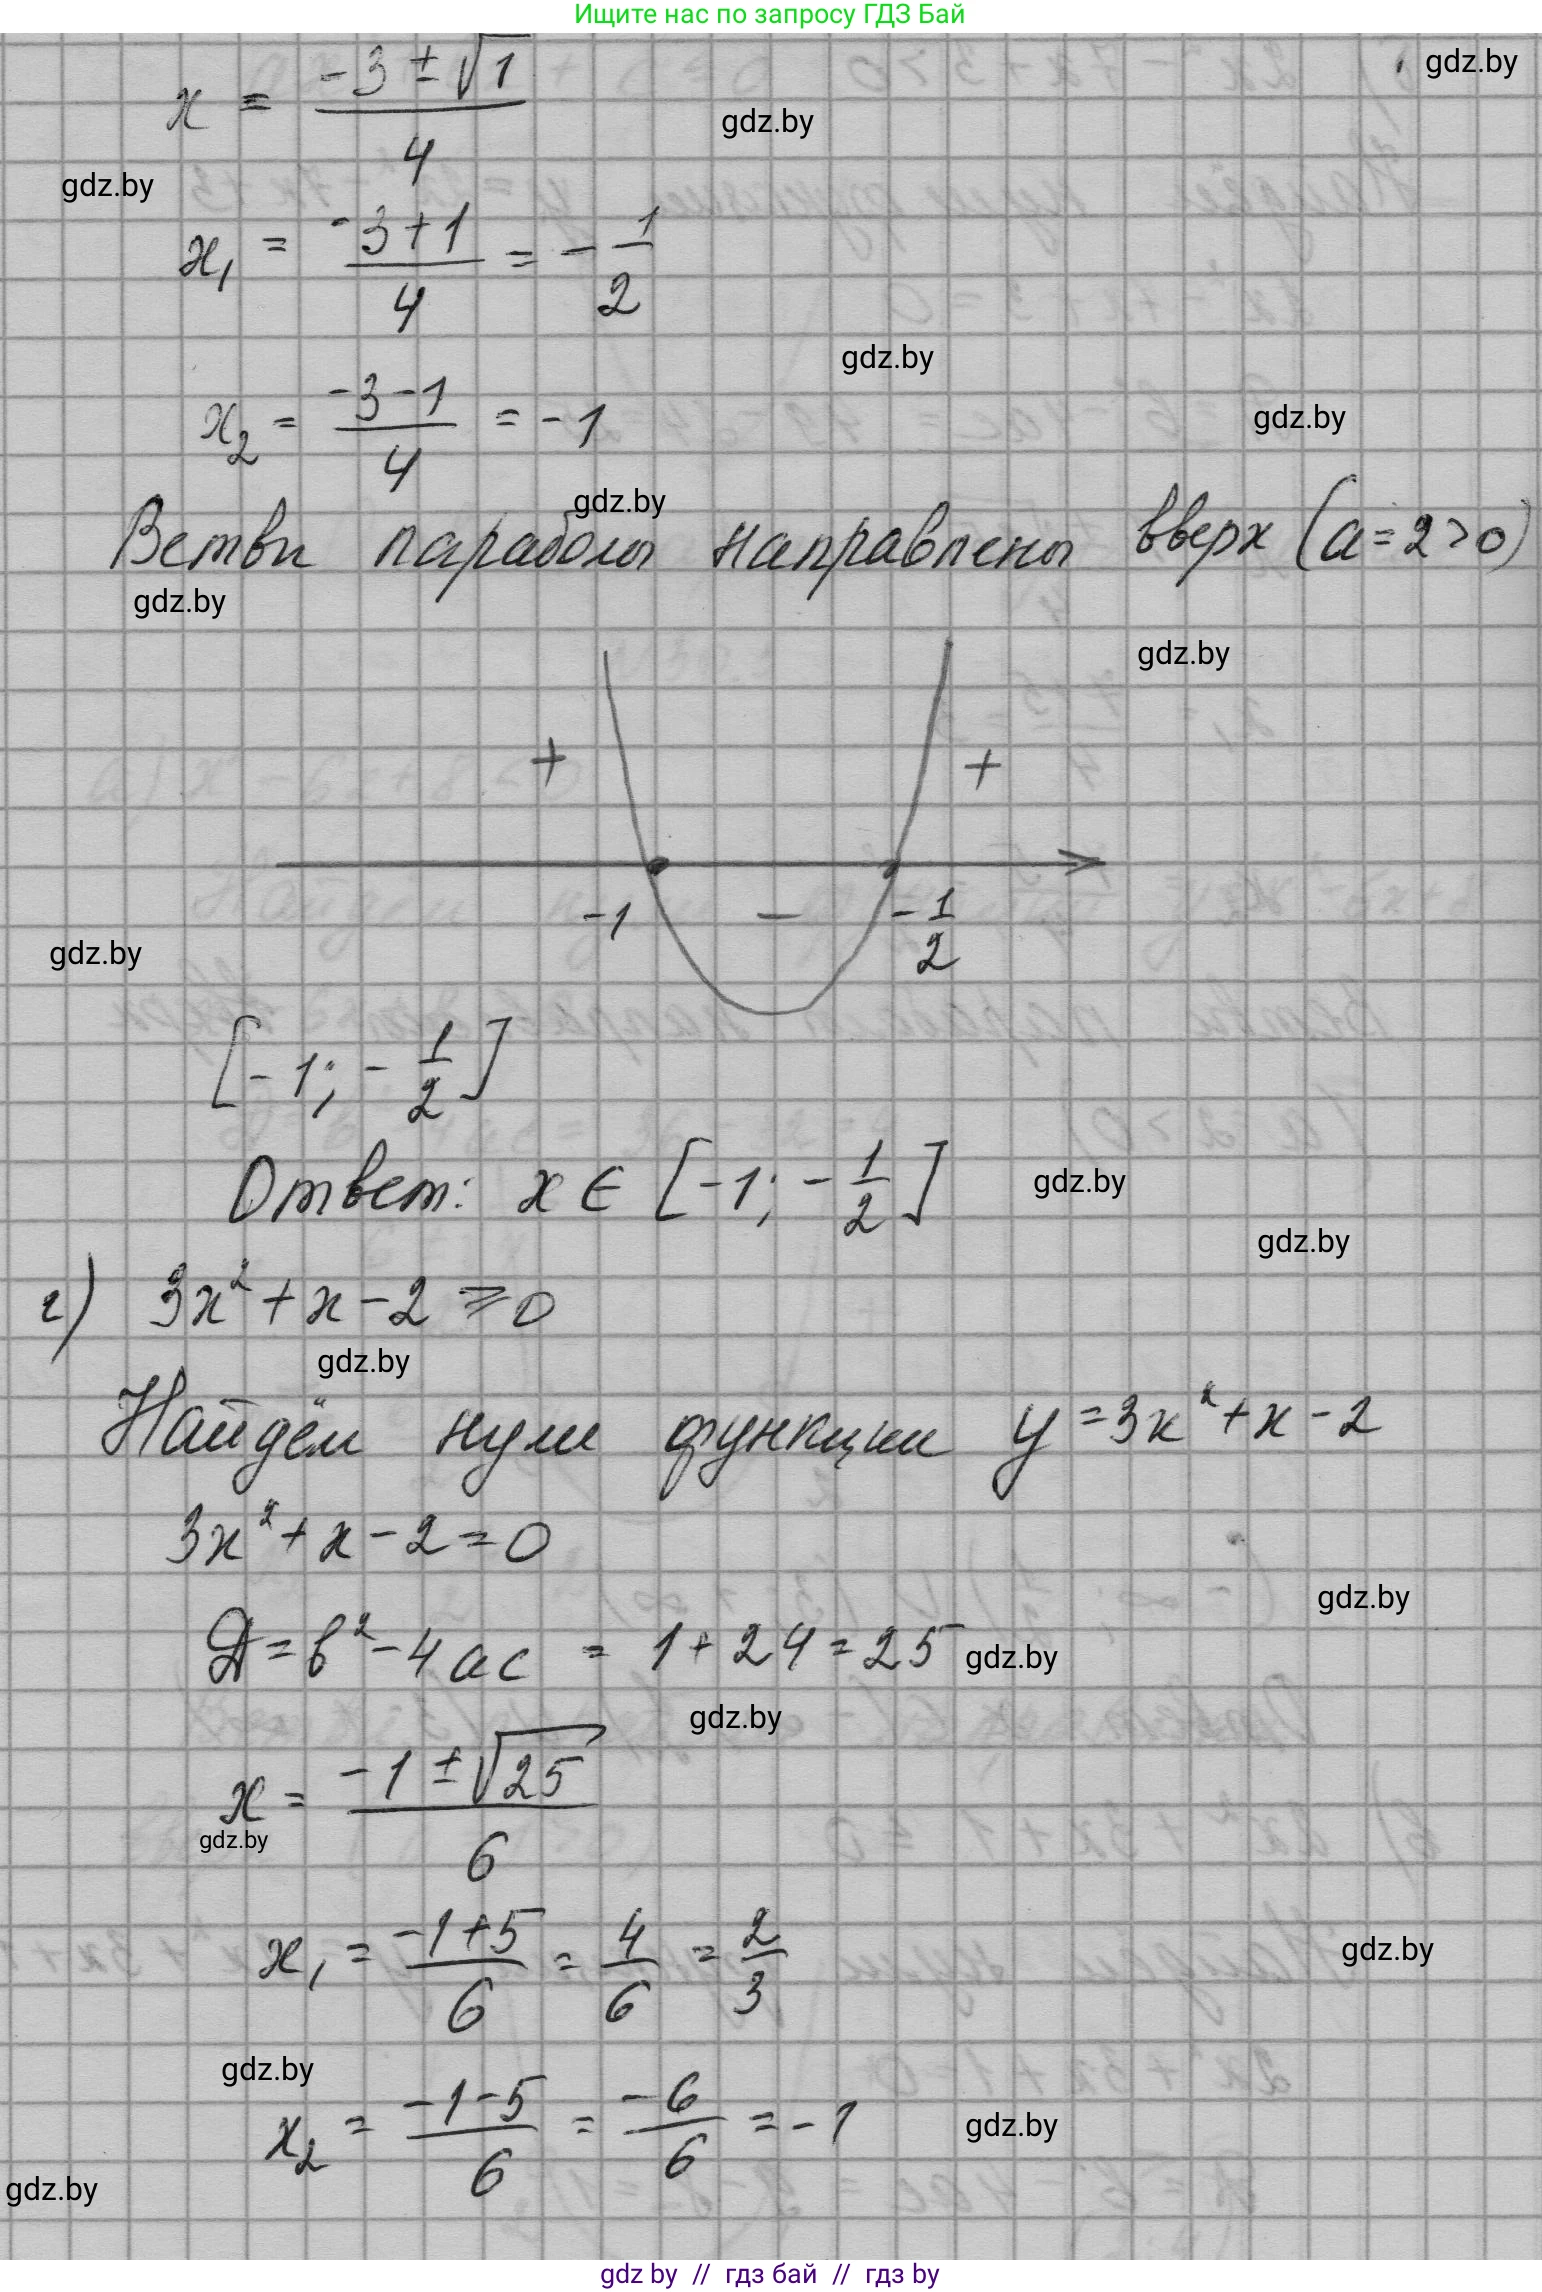 Ищите нас по запросу ГДЗ Бай
gdz.by
x = (-3 ± √1)/4
gdz.by
gdz.by
x₁ = (-3+1)/4 = -1/2
gdz.by
x₂ = (-3-1)/4 = -1
gdz.by
gdz.by
Ветви параболы направлены вверх (a=2>0)
gdz.by
gdz.by
+ +
-1 − -1/2
gdz.by
[-1; -1/2]
Ответ: x ∈ [-1; -1/2]
gdz.by
gdz.by
г) 3x² + x - 2 ≥ 0
gdz.by
Найдём нули функции y = 3x² + x - 2
3x² + x - 2 = 0
gdz.by
Д = b² - 4ac = 1 + 24 = 25
gdz.by
gdz.by
x = (-1 ± √25)/6
gdz.by
x₁ = (-1+5)/6 = 4/6 = 2/3
gdz.by
gdz.by
x₂ = (-1-5)/6 = -6/6 = -1
gdz.by
gdz.by
gdz by // гдз бай // гдз by